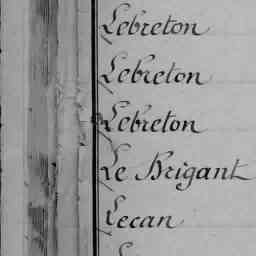 Lebreton
Lebreton
Lebreton
Le Brigant
Lecan